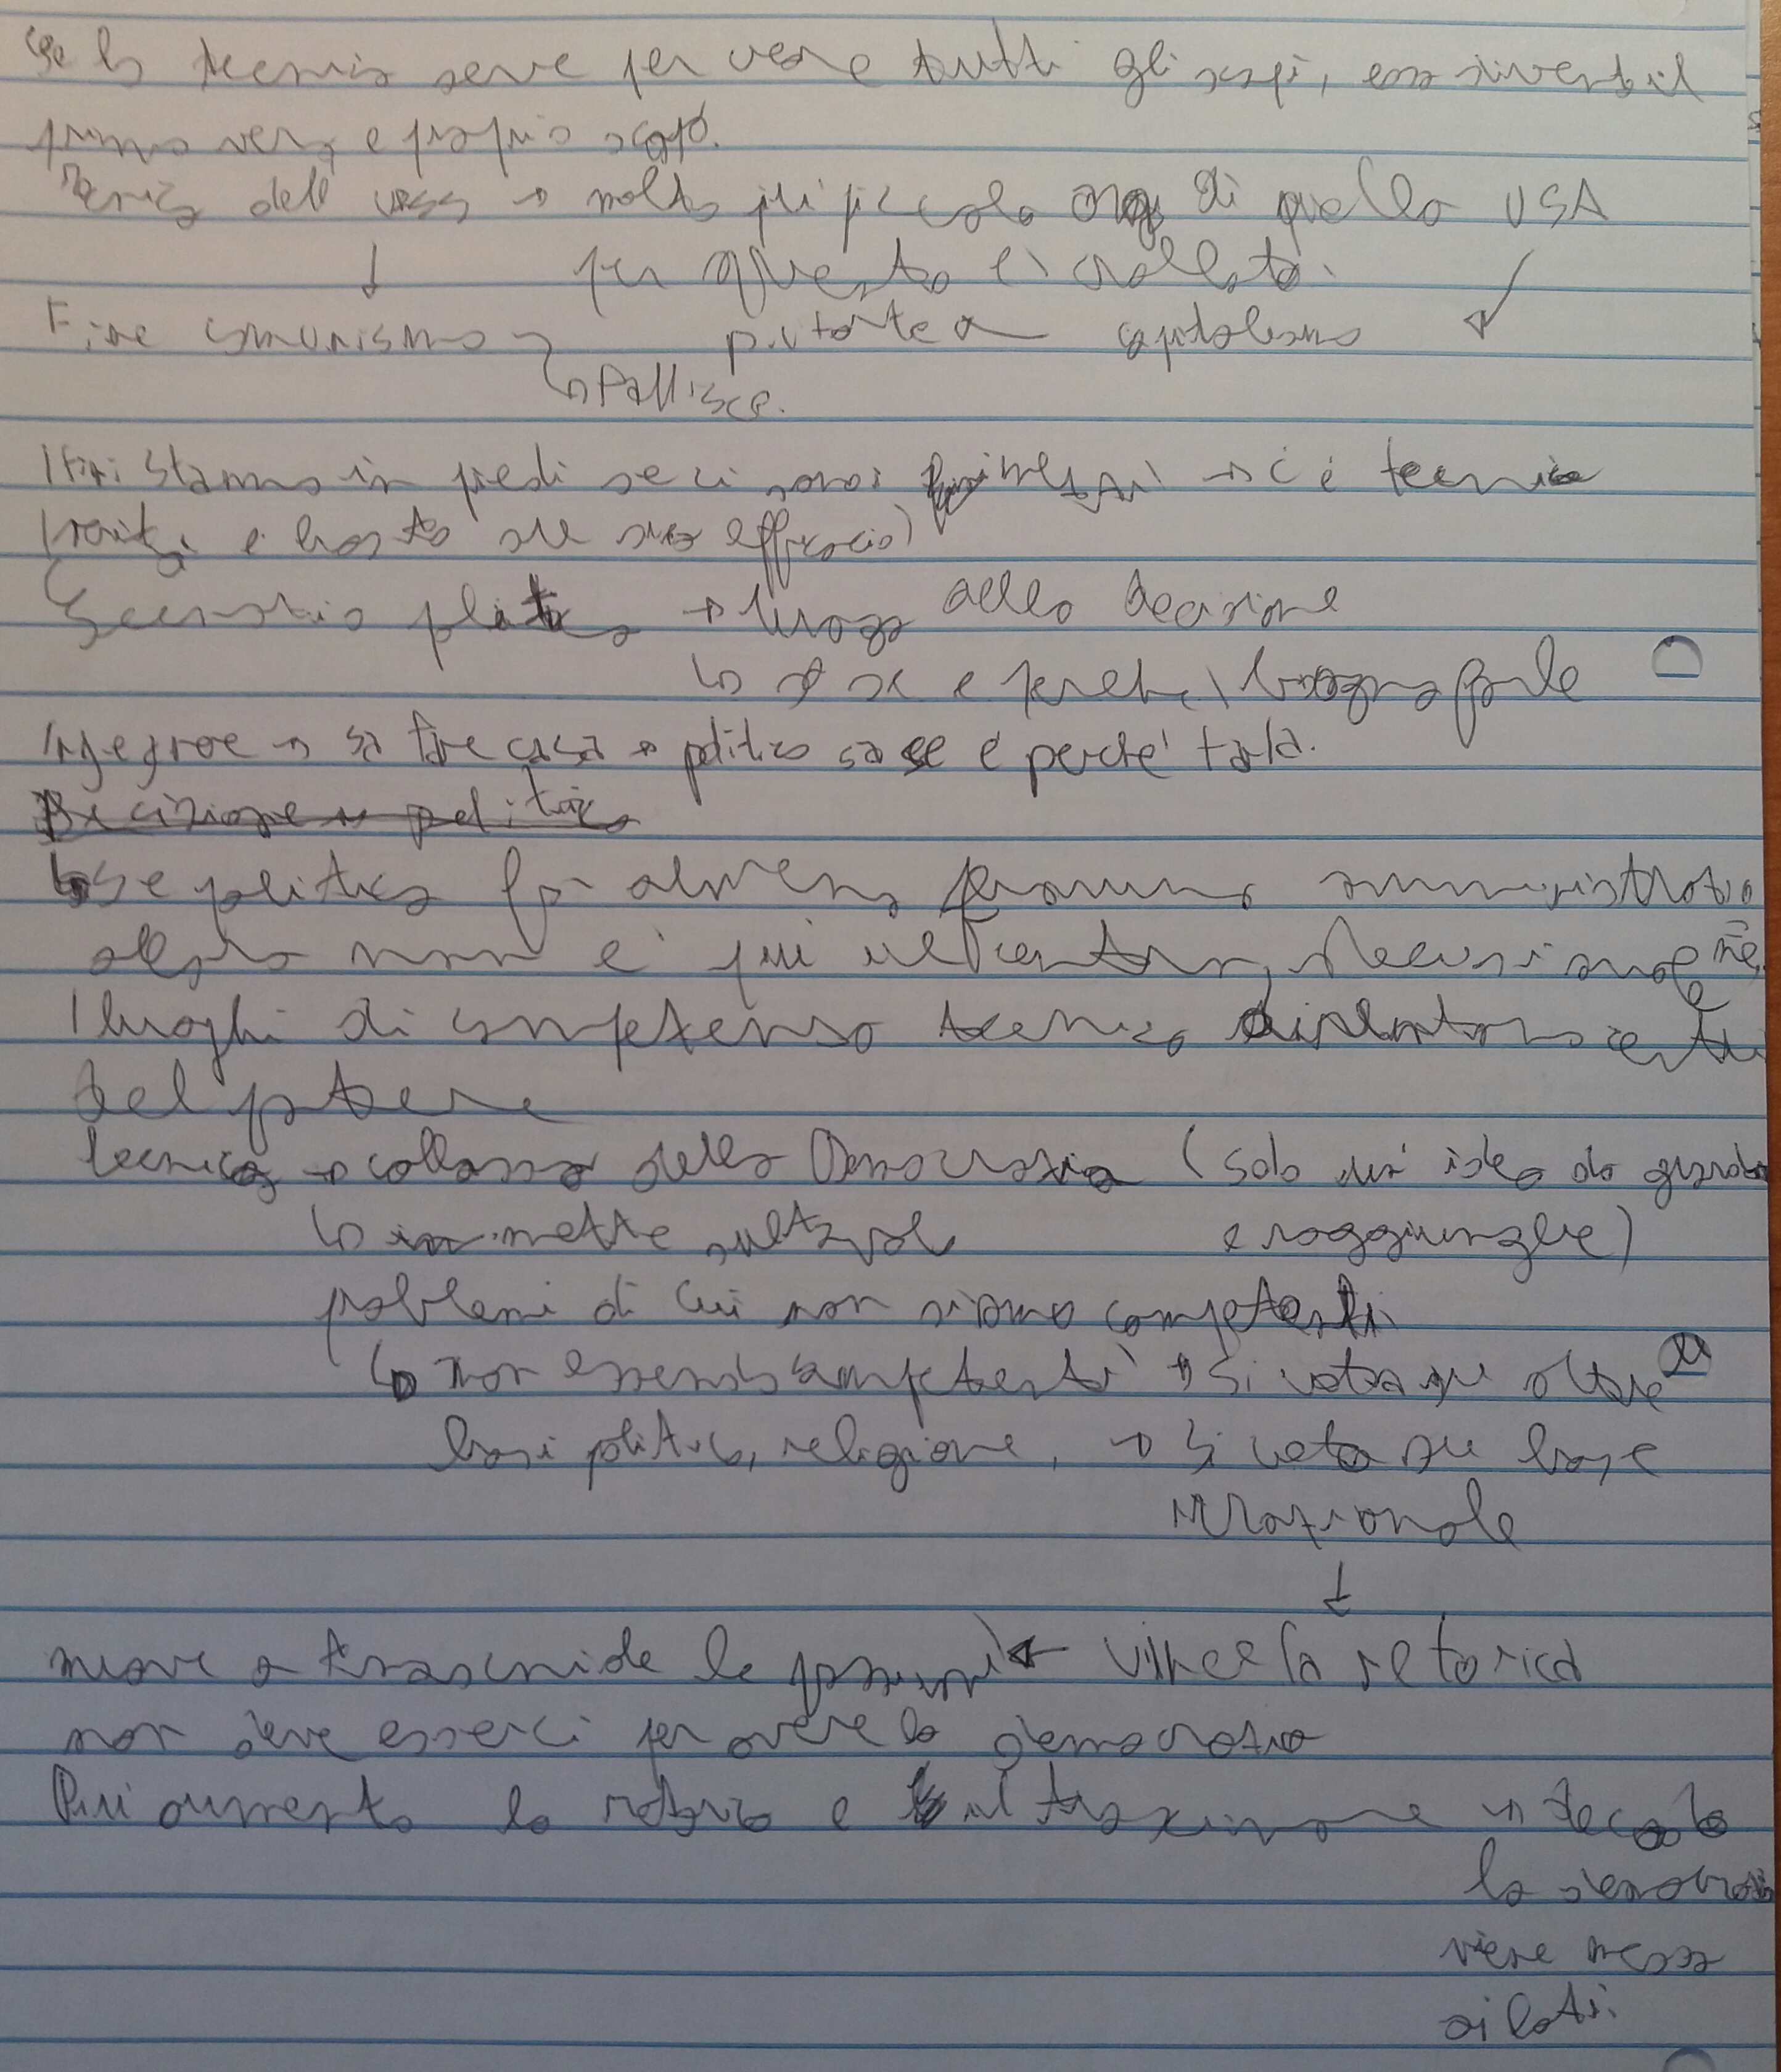 Se la tecnica serve per avere tutti gli scopi, essa diventa il
primo vero e proprio scopo.
Tecnica dell' URSS → molto più piccola di quella USA
↓ per questo è crollata.
Fine comunismo portare a capitalismo
↳ Fallisce.
I fini stanno in piedi se ci sono i mezzi → c'è tecnica
e basta su sua efficacia)
Scenario politico → luogo della decisione
↳ se e perché bisogna farle
→ sa fare cosa → politica sa se e perché farla.
Decisione → politica
↳ se politica fa almeno amministrativo
allora non è più il centro decisionale
I luoghi di competenza tecnica diventano centri
del potere
tecnica → collasso della Democrazia (solo un' idea da guardare
↳ mette sul tavolo e raggiungere)
problemi di cui non siamo competenti
↳ non essendo competenti → si vota su altre
basi politica, religione, → si vota su base
irrazionale
↓
← vince la retorica
non deve esserci per avere la democrazia
Più aumenta la retorica e →
la democrazia
viene messa
ai lati.